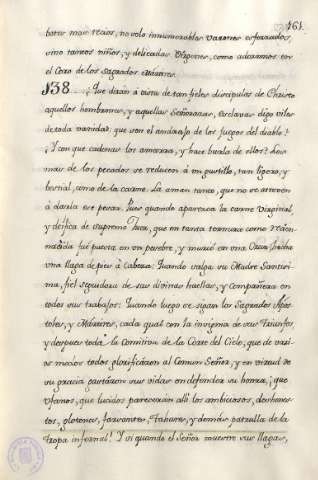 161.
botes mas recios, no solo innumerables Varones esforzados,
sino tantos niños, y delicadas Virgenes, como adoramos en
el Coro de los Sagrados Martires.
138. ¿Que dirán à vista de tan fieles discipulos de Christo
aquellos hombrones, y aquellas Señorazas, esclavas digo viles
de toda vanidad, que son el andrajo de los juegos del diablo?
¿Y con que cadenas los amarra, y hace burla de ellos? Los
mas de los pecados se reducen à un gustillo, tan ligero, y
bestial, como de la carne. La aman tanto, que no se atreven
à darla ese pesar. Pues quando aparezca la carne Virginal
y deifica del supremo Juez, que en tanta ternura como recien
nacida fué puesta en un pesebre, y murió en una Cruz hecha
una llaga de pies à Cabeza: Quando salga su Madre Santisi-
ma, fiel seguidora de sus divinas huellas, y compañera en
todos sus trabajos: Quando luego se sigan los Sagrados Apos-
toles, y Martires, cada qual con la insignia de sus Triunfos,
y despues toda la Comitiva de la Corte del Cielo, que de vari-
os modos todos glorificáron al Comun Señor, y en virtud de
su gracia gastáron sus vidas en defender su honra; ¡que
ufanos, que lucidos pareceràn allí los ambiciosos, deshones-
tos, glotones, farsantes, Tahures, y demás patrulla de la
Tropa infernal! Y si quando el Señor muestre sus llagas,